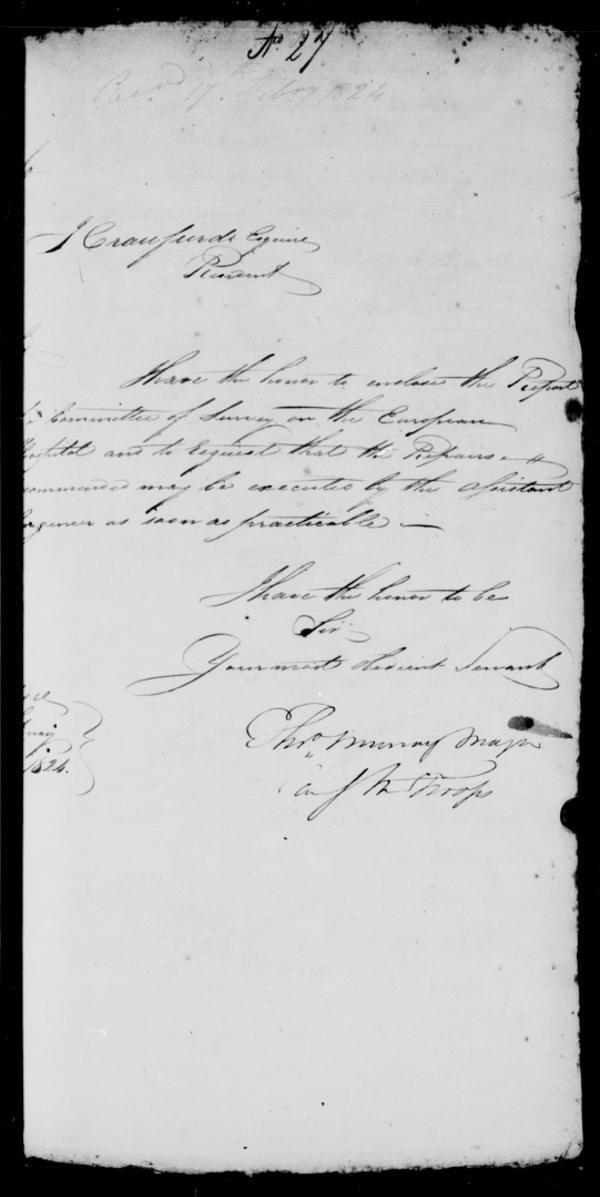 No 27
Recd 17th Febry 1824
J Crawfurd Esquire
Resident
I have the honor to enclose the Report
Committee of Survey on the European
Hospital and to request that the Repairs re=
commended may be executed by the Assistant
gineer as soon as practicable —
I have the honor to be
Sir
Your most obedient Servant
ore
1824.
Thos Murray Major
Troops